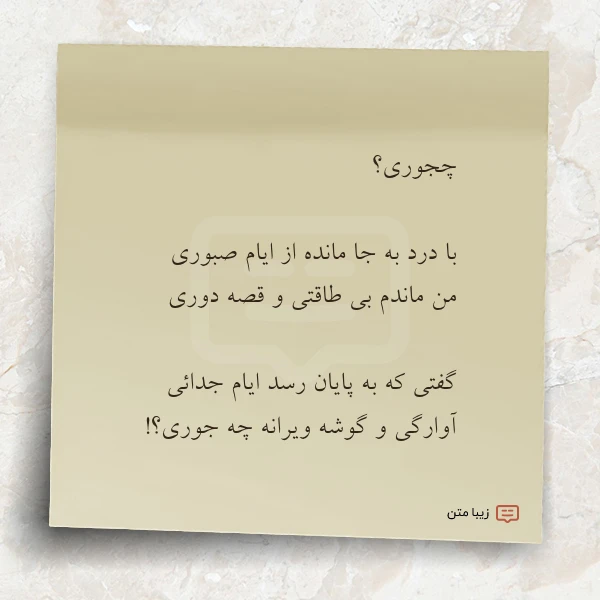 چجوری؟
با درد به جا مانده از ایام صبوری
من ماندم بی طاقتی و قصه دوری
گفتی که به پایان رسد ایام جدائی
آوارگی و گوشه ویرانه چه جوری؟!
زیبا متن